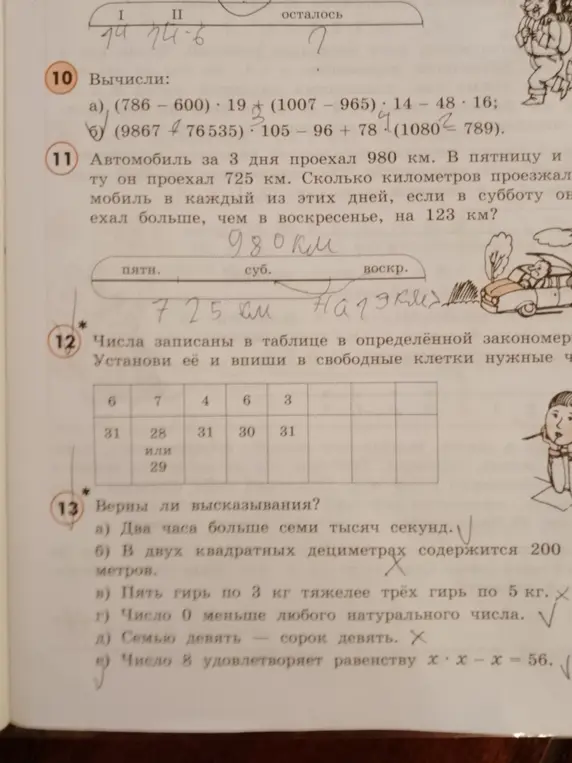 I II осталось
14 14-6 ?
10 Вычисли:
а) (786 − 600) · 19 + (1007 − 965) · 14 − 48 · 16;
б) (9867 + 76535) · 105 − 96 + 78 · (1080 − 789).
11 Автомобиль за 3 дня проехал 980 км. В пятницу и
ту он проехал 725 км. Сколько километров проезжал
мобиль в каждый из этих дней, если в субботу он
ехал больше, чем в воскресенье, на 123 км?
980 км
пятн. суб. воскр.
725 км
12* Числа записаны в таблице в определённой закономер
Установи её и впиши в свободные клетки нужные ч
6 7 4 6 3
31 28 31 30 31
или
29
13* Верны ли высказывания?
а) Два часа больше семи тысяч секунд.
б) В двух квадратных дециметрах содержится 200
метров.
в) Пять гирь по 3 кг тяжелее трёх гирь по 5 кг.
г) Число 0 меньше любого натурального числа.
д) Семью девять — сорок девять.
е) Число 8 удовлетворяет равенству x · x − x = 56.